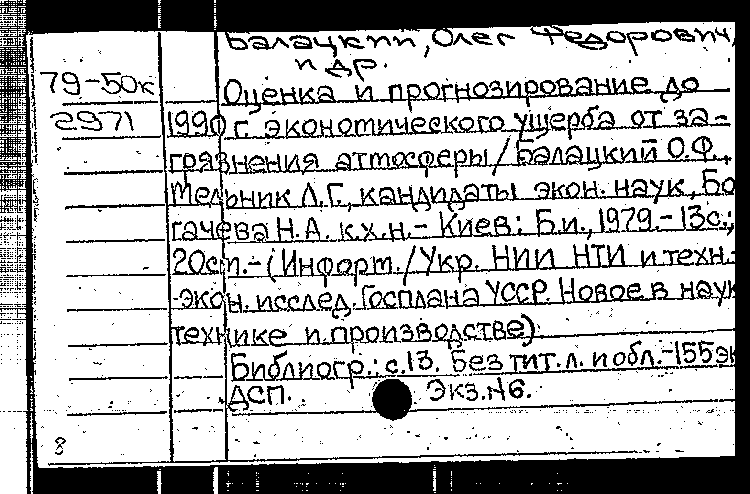 Балацкий, Олег Федорович,
и др.
79-50к Оценка и прогнозирование до
2971 1990 г. экономического ущерба от за-
грязнения атмосферы / Балацкий О.Ф.,
Мельник Л.Г., кандидаты экон. наук, Бо
гачева Н.А. к.х.н. - Киев: Б.и., 1979. - 13с.;
20см. - (Информ. / Укр. НИИ НТИ и техн.-
экон. исслед. Госплана УССР. Новое в наук
технике и производстве)
Библиогр.: с.13. Без тит. л. и обл. - 155 эк
ДСП. Экз. №6.
8